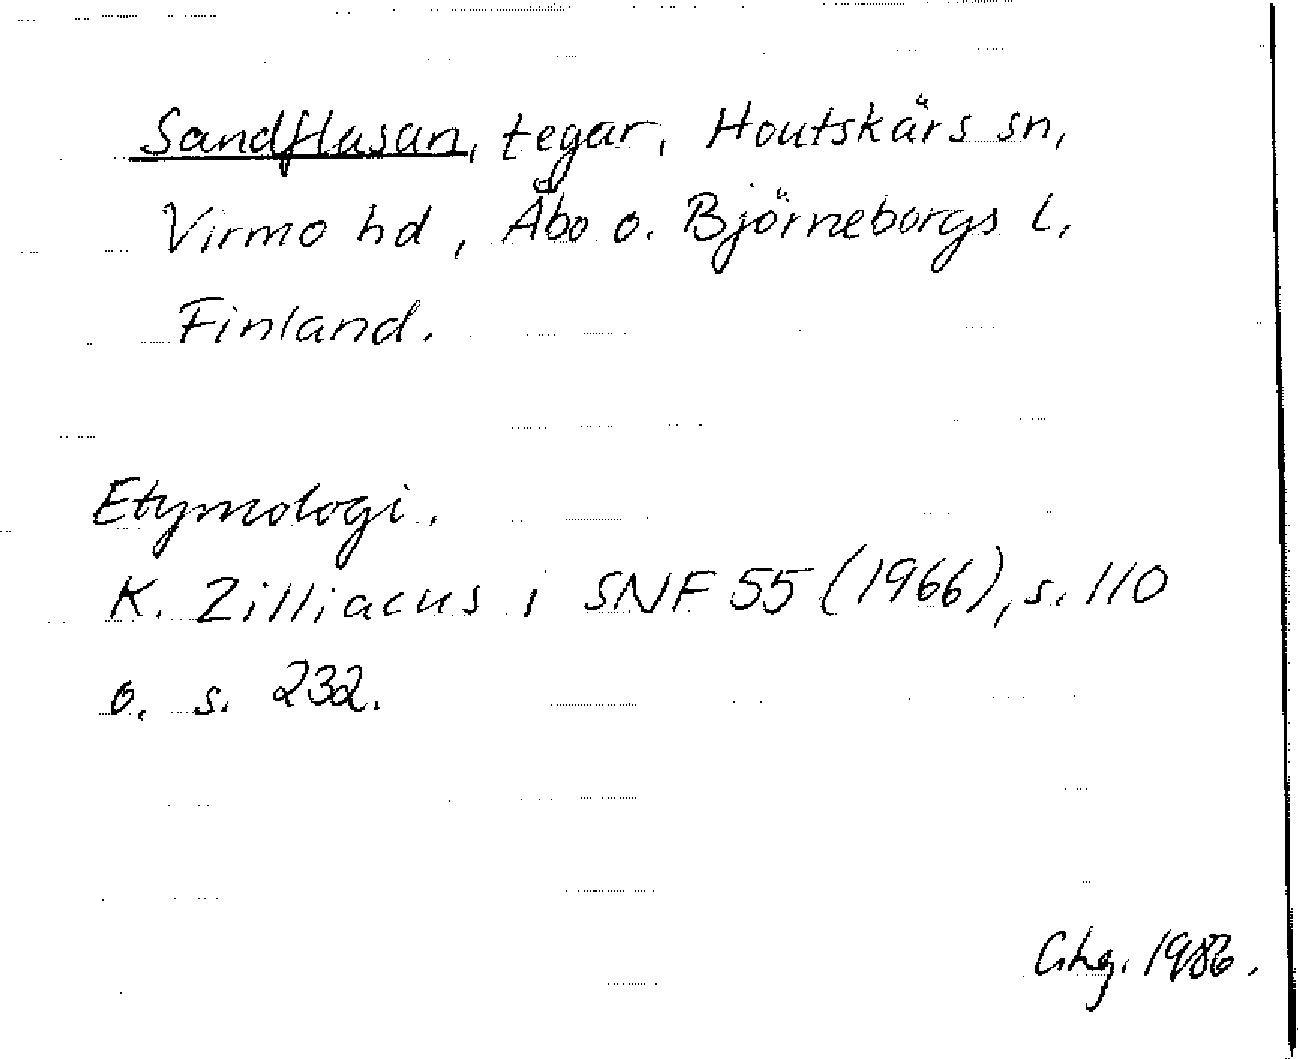 Sandflasan, tegar, Houtskärs sn,
Virmo hd, Åbo o. Björneborgs l,
Finland.
Etymologi.
K. Zilliacus i SNF 55 (1966), s. 110
o. s. 232.